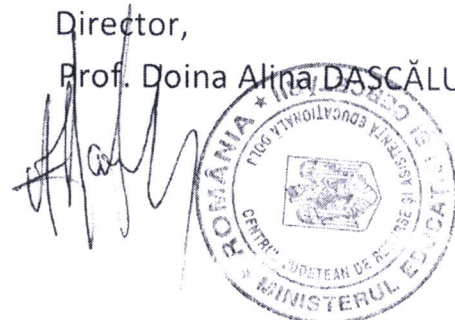 Director,
Prof. Doina Alina DASCĂLU
ROMÂNIA * MINISTERUL EDUCAȚIEI ȘI CERCETĂRII *
CENTRUL JUDEȚEAN DE RESURSE ȘI ASISTENȚĂ EDUCAȚIONALĂ DOLJ